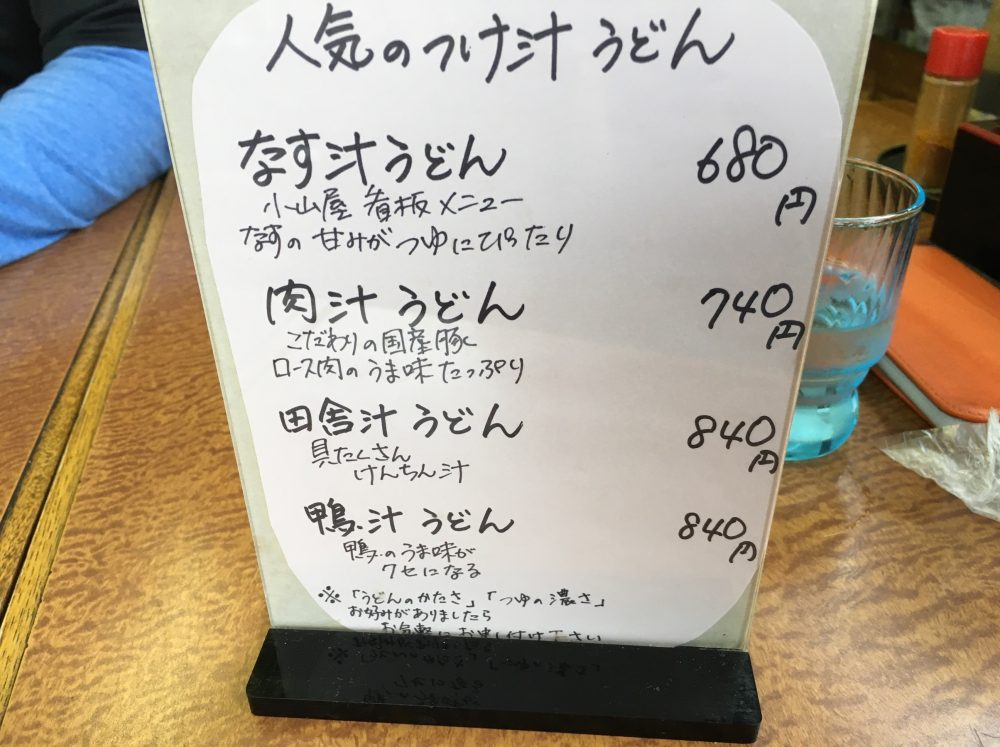 人気のつけ汁うどん
なす汁うどん 680円
小山屋 看板メニュー
なすの甘みがつゆにぴったり
肉汁うどん 740円
こだわりの国産豚
ロース肉のうま味たっぷり
田舎汁うどん 840円
具たくさん
けんちん汁
鴨汁うどん 840円
鴨のうま味が
クセになる
※「うどんのかたさ」「つゆの濃さ」
お好みがありましたら
お気軽にお申し付け下さい